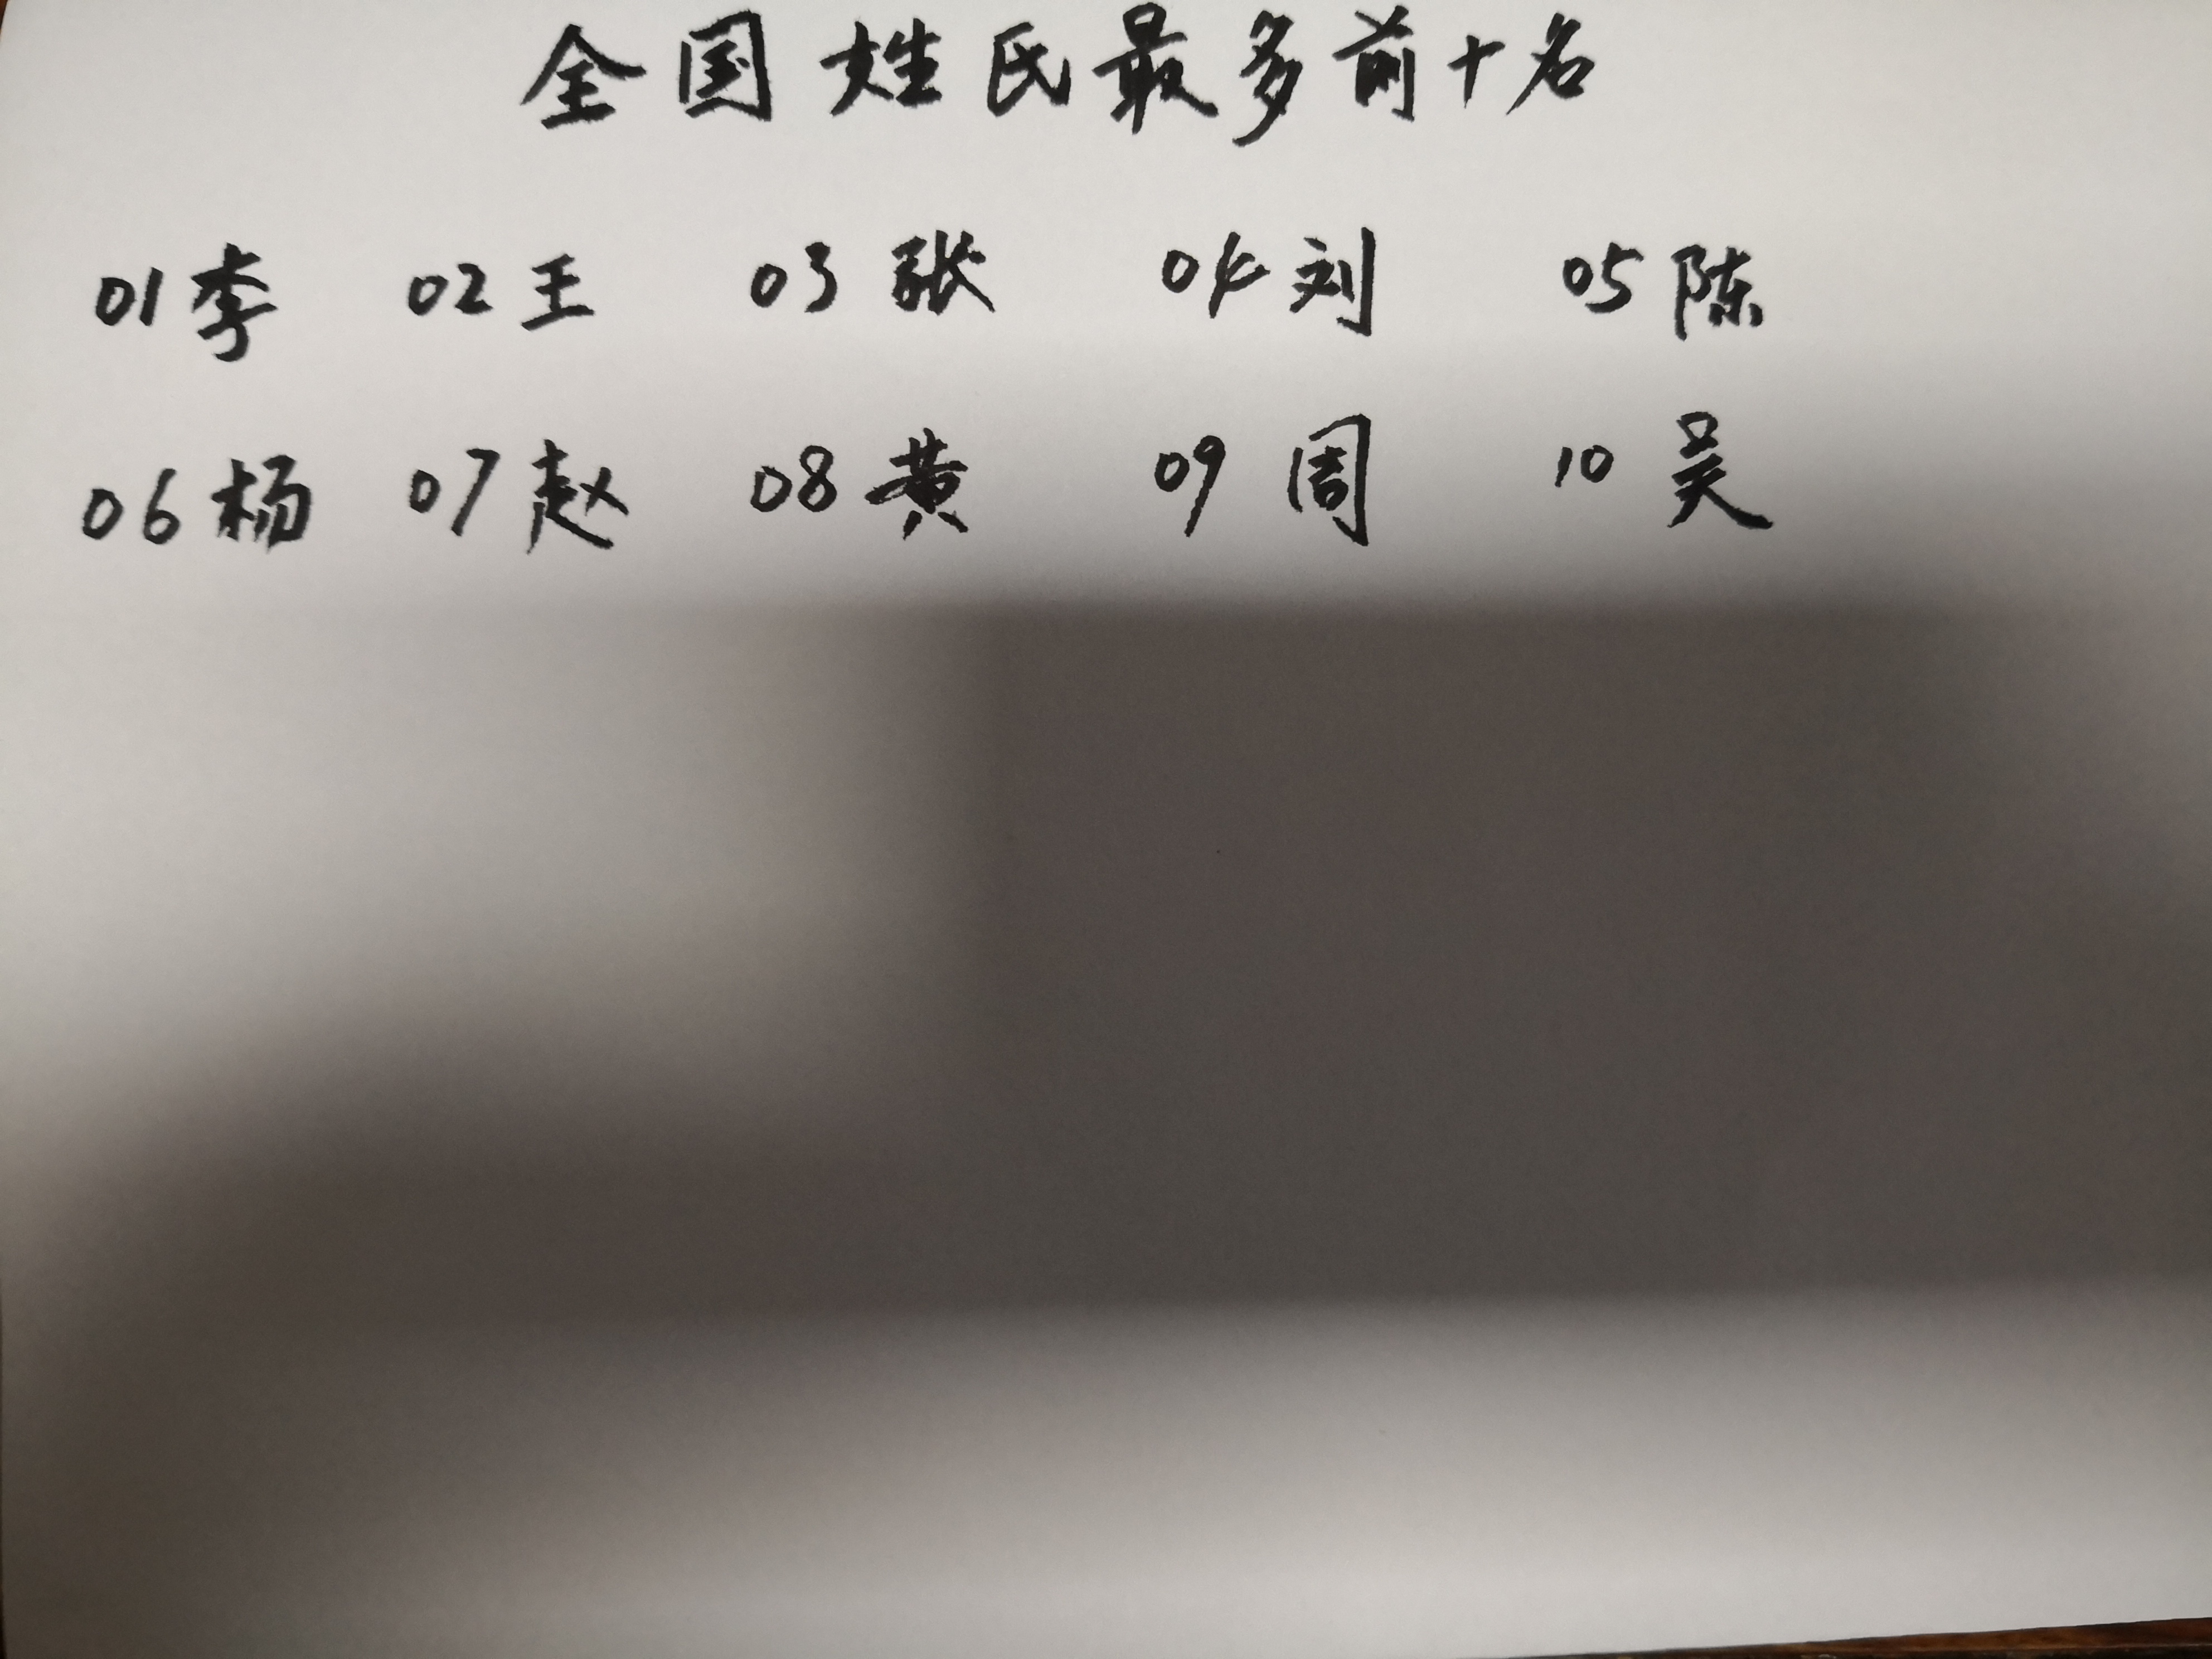 全国姓氏最多前十名
01李 02王 03张 04刘 05陈
06杨 07赵 08黄 09周 10吴